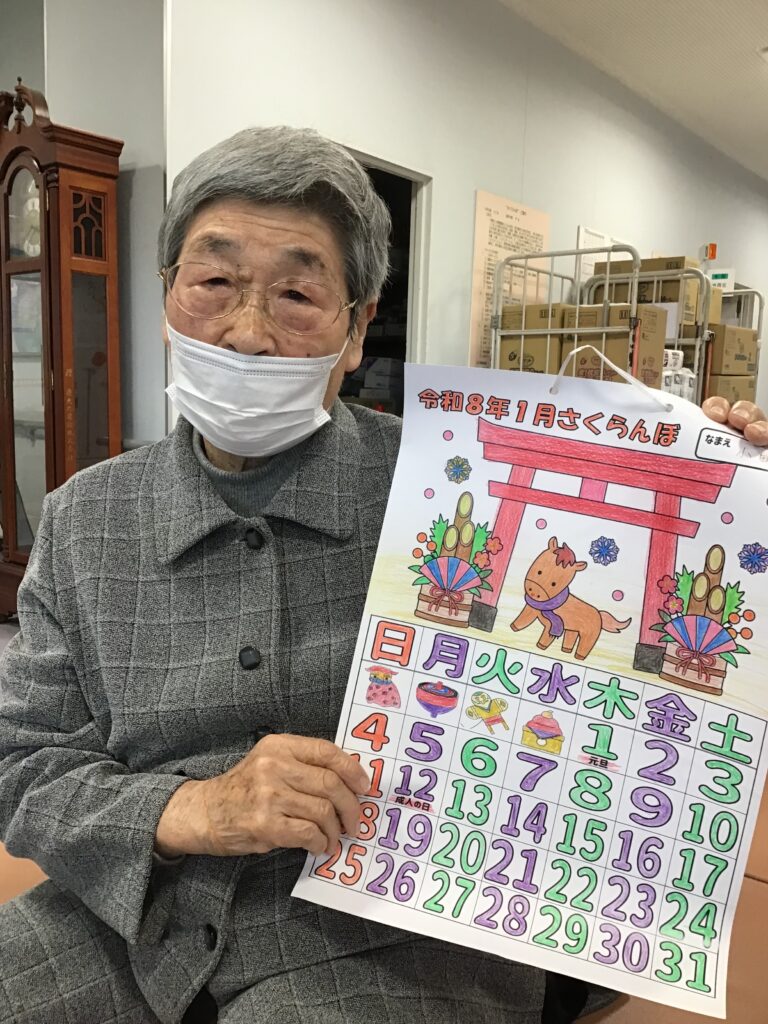 令和8年1月さくらんぼ
なまえ
日 月 火 水 木 金 土
1 2 3
元旦
4 5 6 7 8 9 10
11 12 13 14 15 16 17
成人の日
18 19 20 21 22 23 24
25 26 27 28 29 30 31